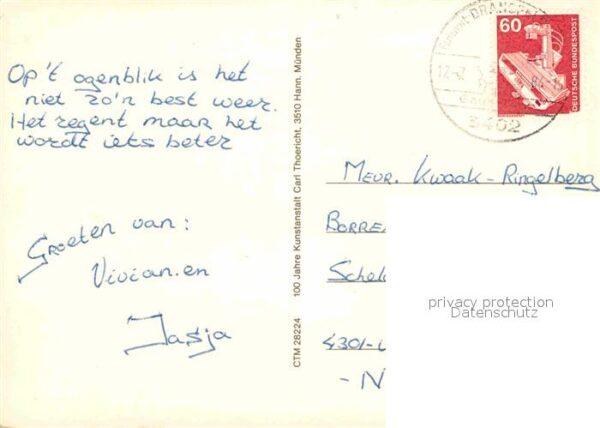 Op't ogenblik is het
niet zo'n best weer.
Het regent maar het
wordt iets beter
Groeten van:
Vivian.en
Tasja
CTM 28224 100 Jahre Kunstanstalt Carl Thoericht, 3510 Hann. Münden
60
DEUTSCHE BUNDESPOST
3402
Mevr. Kwaak-Ringelberg
Borre
Schel
4301-
-N
privacy protection
Datenschutz